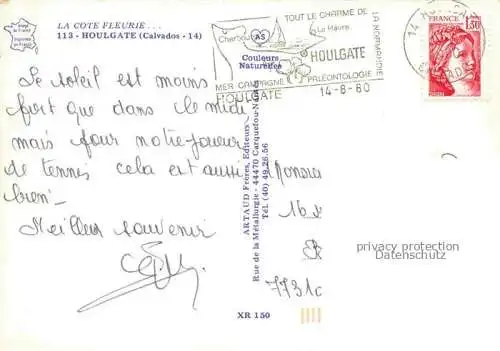 LA COTE FLEURIE...
113 - HOULGATE (Calvados - 14)
TOUT LE CHARME DE LA NORMANDIE
Cherbourg
Le Havre
HOULGATE
MER CAMPAGNE PALÉONTOLOGIE
HOULGATE 14-8-80
AS
Couleurs
Naturelles
FRANCE
1,30
Le soleil est moins
fort que dans le midi
mais pour notre joueur
de tennis cela est aussi
bien.
Meilleur souvenir
ARTAUD Frères, Editeurs
Rue de la Métallurgie - 44470 Carquefou-Nantes
Tél. (40) 49.26.56
XR 150
privacy protection
Datenschutz